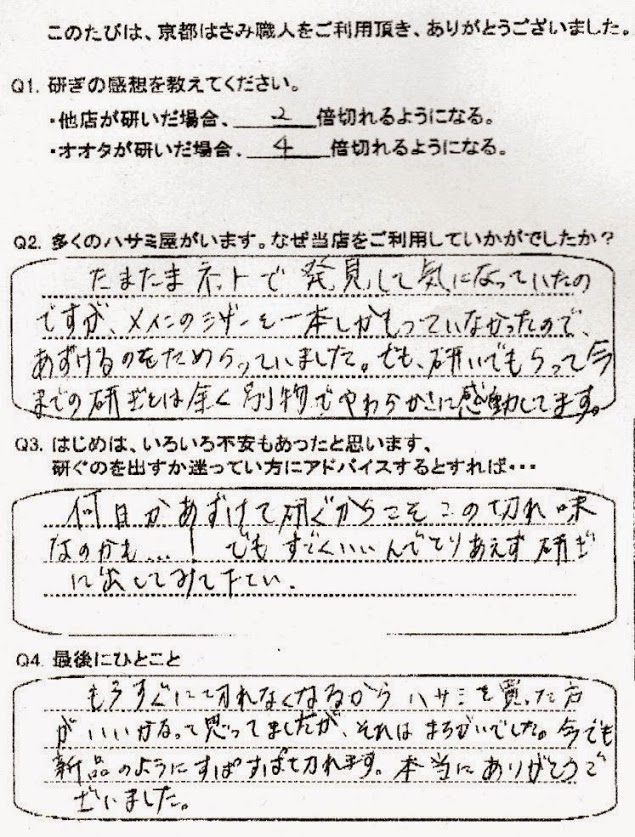 このたびは、京都はさみ職人をご利用頂き、ありがとうございました。
Q1. 研ぎの感想を教えてください。
・他店が研いだ場合、 2 倍切れるようになる。
・オオタが研いだ場合、 4 倍切れるようになる。
Q2. 多くのハサミ屋がいます。なぜ当店をご利用していかがでしたか？
たまたまネットで発見して気になっていたの
ですが、メインのシザーを一本しかもっていなかったので、
あずけるのをためらっていました。でも、研いでもらって今
までの研ぎとは全く別物でやわらかさに感動してます。
Q3. はじめは、いろいろ不安もあったと思います、
研ぐのを出すか迷ってい方にアドバイスするとすれば・・・
何日かあずけて研ぐからこそこの切れ味
なのかも...! でもすごくいいんでとりあえず研ぎ
に出してみて下さい.
Q4. 最後にひとこと
もうすぐに切れなくなるからハサミを買った方
がいいかなって思ってましたが、それはまちがいでした。今でも
新品のようにすぱすぱ切れます。本当にありがとうご
ざいました。